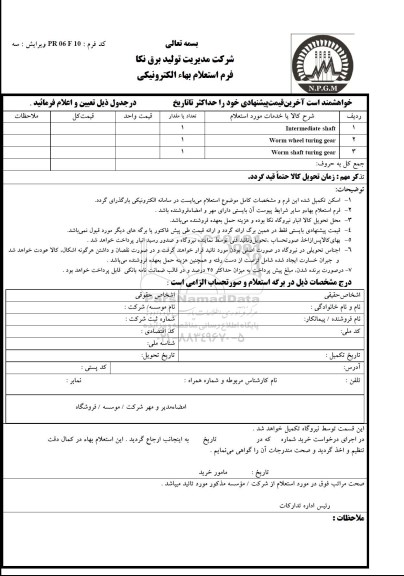 بسمه تعالی
کد فرم : PR 06 F 10 ویرایش : سه
شرکت مدیریت تولید برق نکا
فرم استعلام بهاء الکترونیکی
N.P.G.M
خواهشمند است آخرین قیمت پیشنهادی خود را حداکثر تا تاریخ درجدول ذیل تعیین و اعلام فرمائید .
ردیف شرح کالا یا خدمات مورد استعلام تعداد یا مقدار قیمت واحد قیمت کل ملاحظات
۱ Intermediate shaft ۱
۲ Worm wheel turing gear ۱
۳ Worm shaft turing gear ۱
جمع کل به حروف:
تذکر مهم : زمان تحویل کالا حتماً قید گردد.
توضیحات:
۱- اسکن تکمیل شده این فرم و مشخصات کامل موضوع استعلام می‌بایست در سامانه الکترونیکی بارگذاری گردد.
۲- فرم استعلام بهاء و سایر شرایط پیوست آن بایستی دارای مهر و امضاء فروشنده باشد .
۳- محل تحویل کالا انبار نیروگاه نکا بوده و هزینه حمل بعهده فروشنده می‌باشد.
۴- قیمت پیشنهادی بایستی فقط در همین برگ ارائه گردد و ارائه قیمت طی پیش فاکتور یا برگه های دیگر مورد قبول نمی‌باشد.
۵- بهای کالا پس از اخذ صورتحساب ،تحویل و تائید فنی توسط نماینده نیروگاه و صدور رسید انبار پرداخت خواهد شد .
۶- اجناس تحویلی در نیروگاه در صورت اصلی بودن مورد تائید قرار خواهند گرفت و در صورت نقصان و داشتن هرگونه اشکال، کالا عودت خواهد شد
و جبران خسارت ایجاد شده شامل از دست رفته و همچنین هزینه حمل بعهده فروشنده می‌باشد .
۷- درصورت برنده شدن، مبلغ پیش پرداخت به میزان حداکثر ۲۵ درصد و در قالب ضمانت نامه بانکی قابل پرداخت خواهد بود .
درج مشخصات ذیل در برگه استعلام و صورتحساب الزامی است :
اشخاص حقیقی اشخاص حقوقی
نام و نام خانوادگی : نام موسسه/ شرکت :
نام فروشنده / پیمانکار: شماره ثبت شرکت :
کد ملی: کد اقتصادی :
شناسه ملی:
تاریخ تکمیل : تاریخ تحویل:
آدرس: کد پستی :
تلفن : نام کارشناس مربوطه و شماره همراه : نمابر :
امضاء مدیر و مهر شرکت / موسسه / فروشگاه
این قسمت توسط نیروگاه تکمیل خواهد شد .
در اجرای درخواست خرید شماره که در تاریخ به اینجانب ارجاع گردید . این استعلام بهاء در کمال دقت
تنظیم و اخذ گردید و صحت مندرجات آن را گواهی می‌نمایم .
تاریخ : مامور خرید
صحت مراتب فوق در مورد استعلام از شرکت / مؤسسه مذکور مورد تائید میباشد .
رئیس اداره تدارکات
ملاحظات :